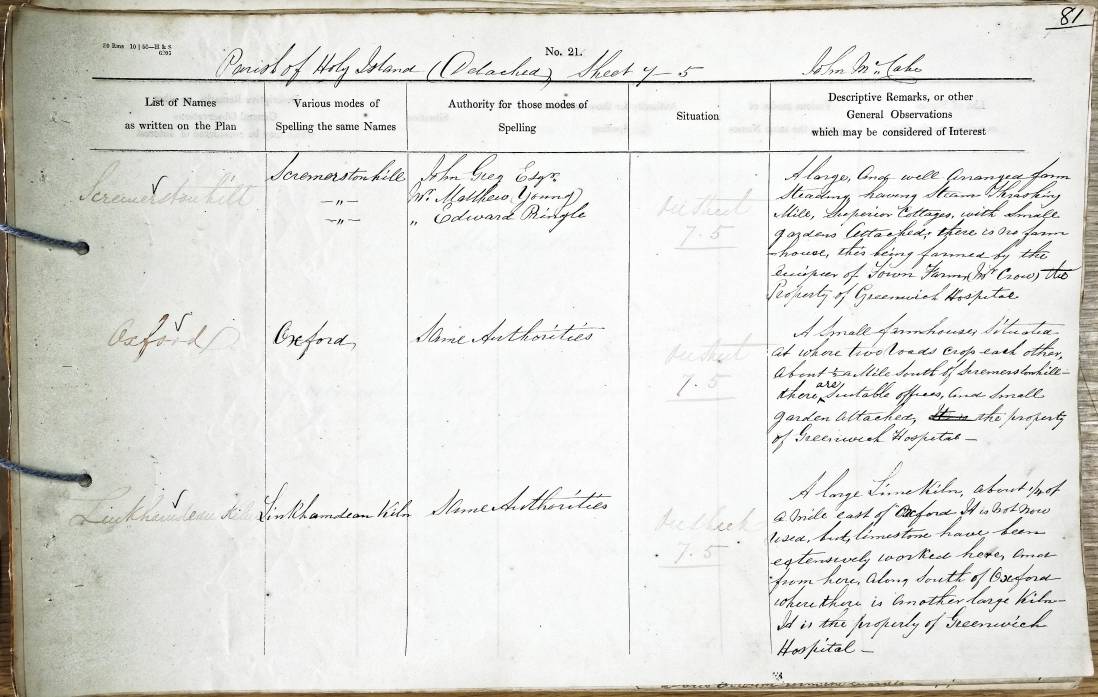 81
20 Rms 10 | 60—H & S
6205
No. 21.
Parish of Holy Island (Detached) Sheet 7-5 John McCabe
List of Names
as written on the Plan
Various modes of
Spelling the same Names
Authority for those modes of
Spelling
Situation
Descriptive Remarks, or other
General Observations
which may be considered of Interest
Scremerstonhill
Scremerstonhill
-"-
-"-
John Greg Esqr.
Mr. Matthew Young
" Edward Pringle
On Sheet
7.5
A large, and well arranged farm
Steading having Steam Thrashing
Mill, Superior Cottages, with Small
gardens attached; there is no farm
-house, this being farmed by the
occupier of Town Farm, (Mr Crow) the
Property of Greenwich Hospital
Oxford
Oxford
Same Authorities
On Sheet
7.5
A small farmhouse, Situated
at where two roads crop each other,
about ½ a Mile South of Scremerstonhill-
there are Suitable offices, and Small
garden attached, It is the property
of Greenwich Hospital -
Linkhamdean Kiln
Linkhamdean Kiln
Same Authorities
On Sheet
7.5
A large Lime Kiln, about 1/4 of
a mile east of Oxford It is not now
used, but, limestone have been
extensively worked here, and
from here, along South of Oxford
where there is another large Kiln-
It is the property of Greenwich
Hospital -